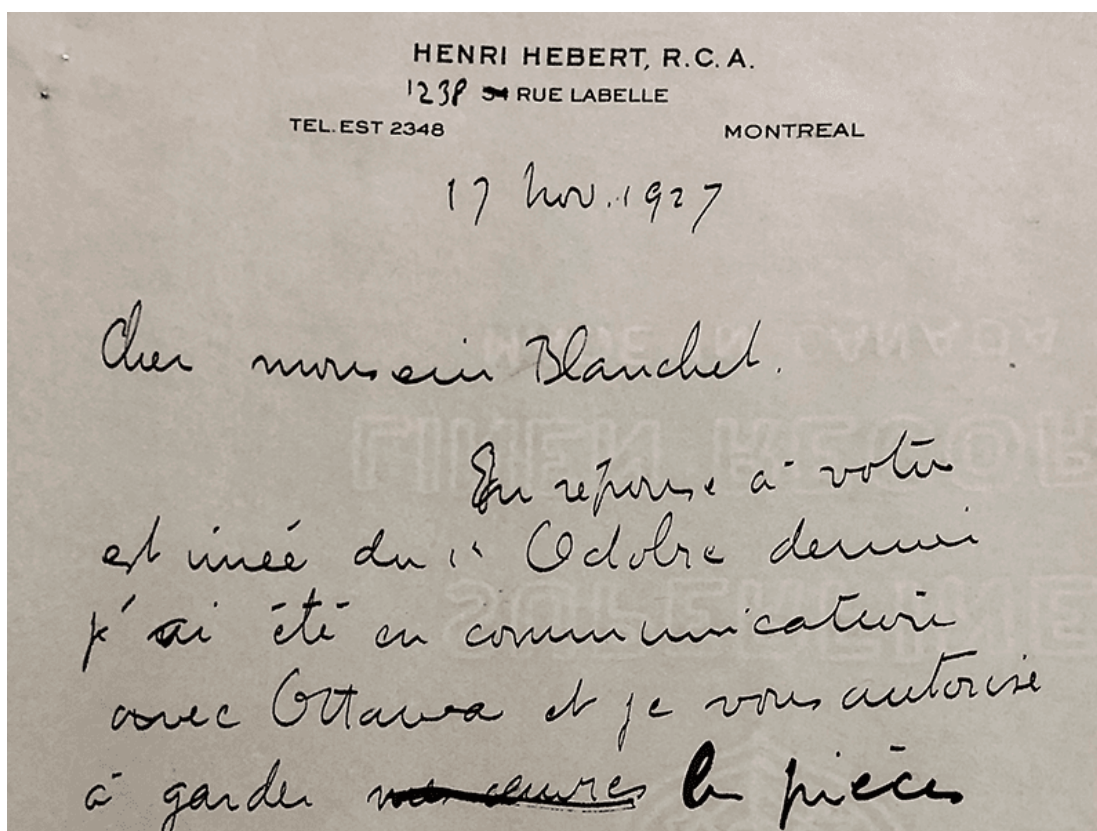 HENRI HEBERT, R.C.A.
1238 RUE LABELLE
TEL. EST 2348 MONTREAL
17 Nov. 1927
Cher monsieur Blanchet.
En réponse à votre
estimée du 1er Octobre dernier
j'ai été en communication
avec Ottawa et je vous autorise
à garder mes œuvres les pièces
MADE IN CANADA
LINEN RECOR
SUPERFINE